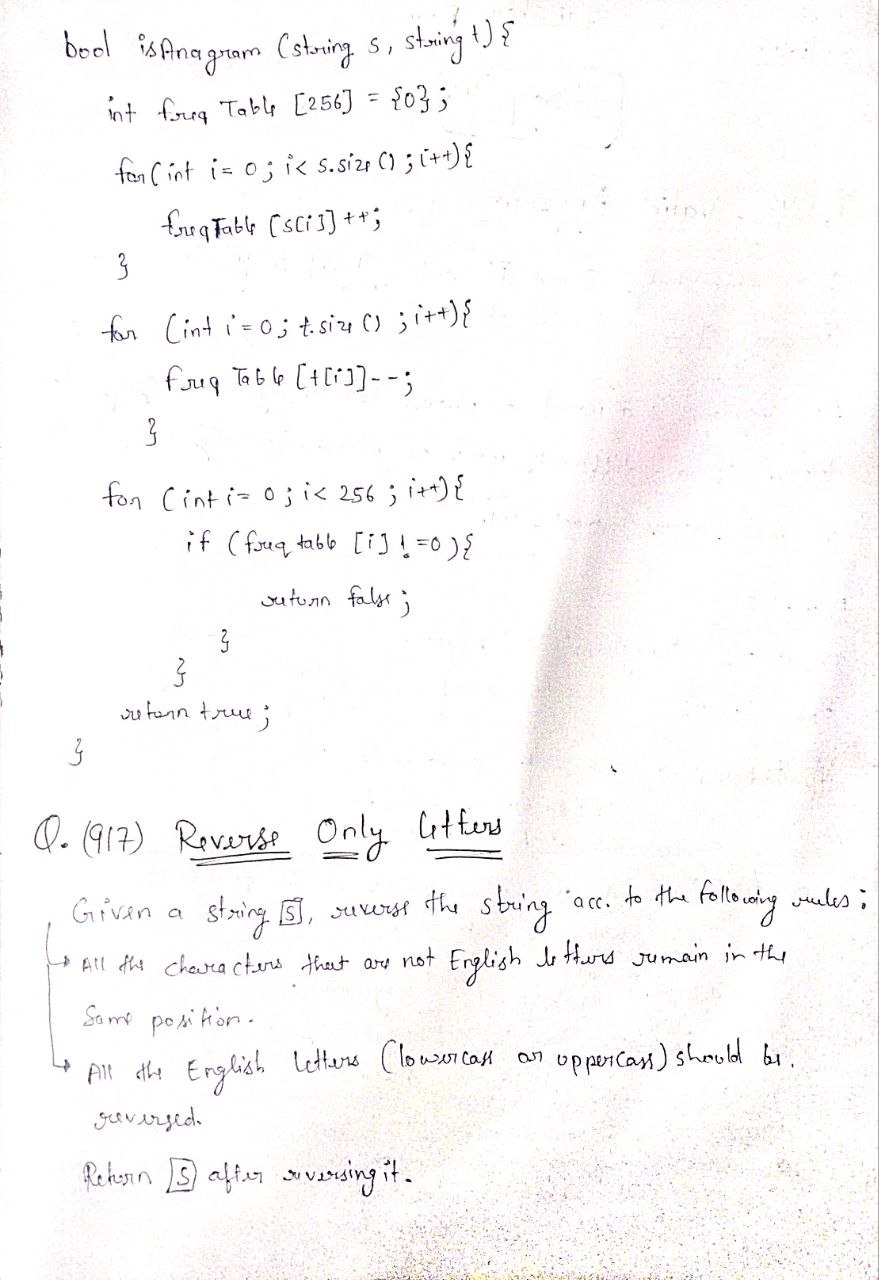 bool isAnagram (string s, string t) {
int freq Table [256] = {0};
for (int i = 0; i < s.size (); i++) {
freqTable [s[i]]++;
}
for (int i = 0; t.size () ; i++) {
freq Table [t[i]]--;
}
for (int i = 0; i < 256; i++) {
if (freq table [i] != 0) {
return false;
}
}
return true;
}
Q. (917) Reverse Only letters
Given a string [S], reverse the string acc. to the following rules:
↳ All the characters that are not English letters remain in the
Same position.
↳ All the English letters (lowercase or uppercase) should be.
reversed.
Return [S] after reversing it.